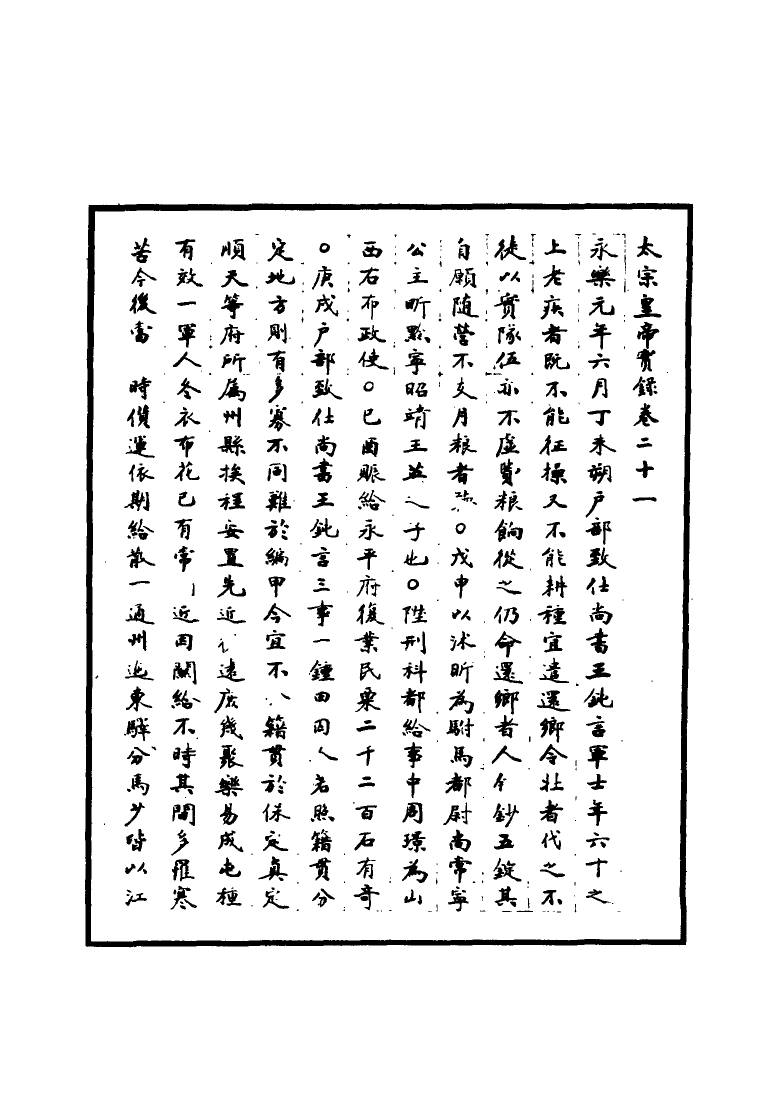 太宗皇帝實錄卷二十一
永樂元年六月丁未朔戶部致仕尚書王鈍言軍士年六十之
上老疾者既不能征操又不能耕種宜遣還鄉令壯者代之不
徒以實隊伍亦不虛費粮餉從之仍命還鄉者人給鈔五錠其
自願随營不支月粮者聽○戊申以沐昕為駙馬都尉尚常寧
公主昕黔寧昭靖王英之子也○陞刑科都給事中周璟為山
西右布政使○己酉賑給永平府復業民粟二千二百石有奇
○庚戌戶部致仕尚書王鈍言三事一種田囚人若照籍貫分
定地方則有多寡不同難於編甲今宜不籍貫於保定真定
順天等府所屬州縣挨程安置先近遠庶幾聚樂易成屯種
有效一軍人冬衣布花已有常近因關給不時其間多罹寒
苦今後當時儹運依期給散一通州迤東驛分馬少皆以江